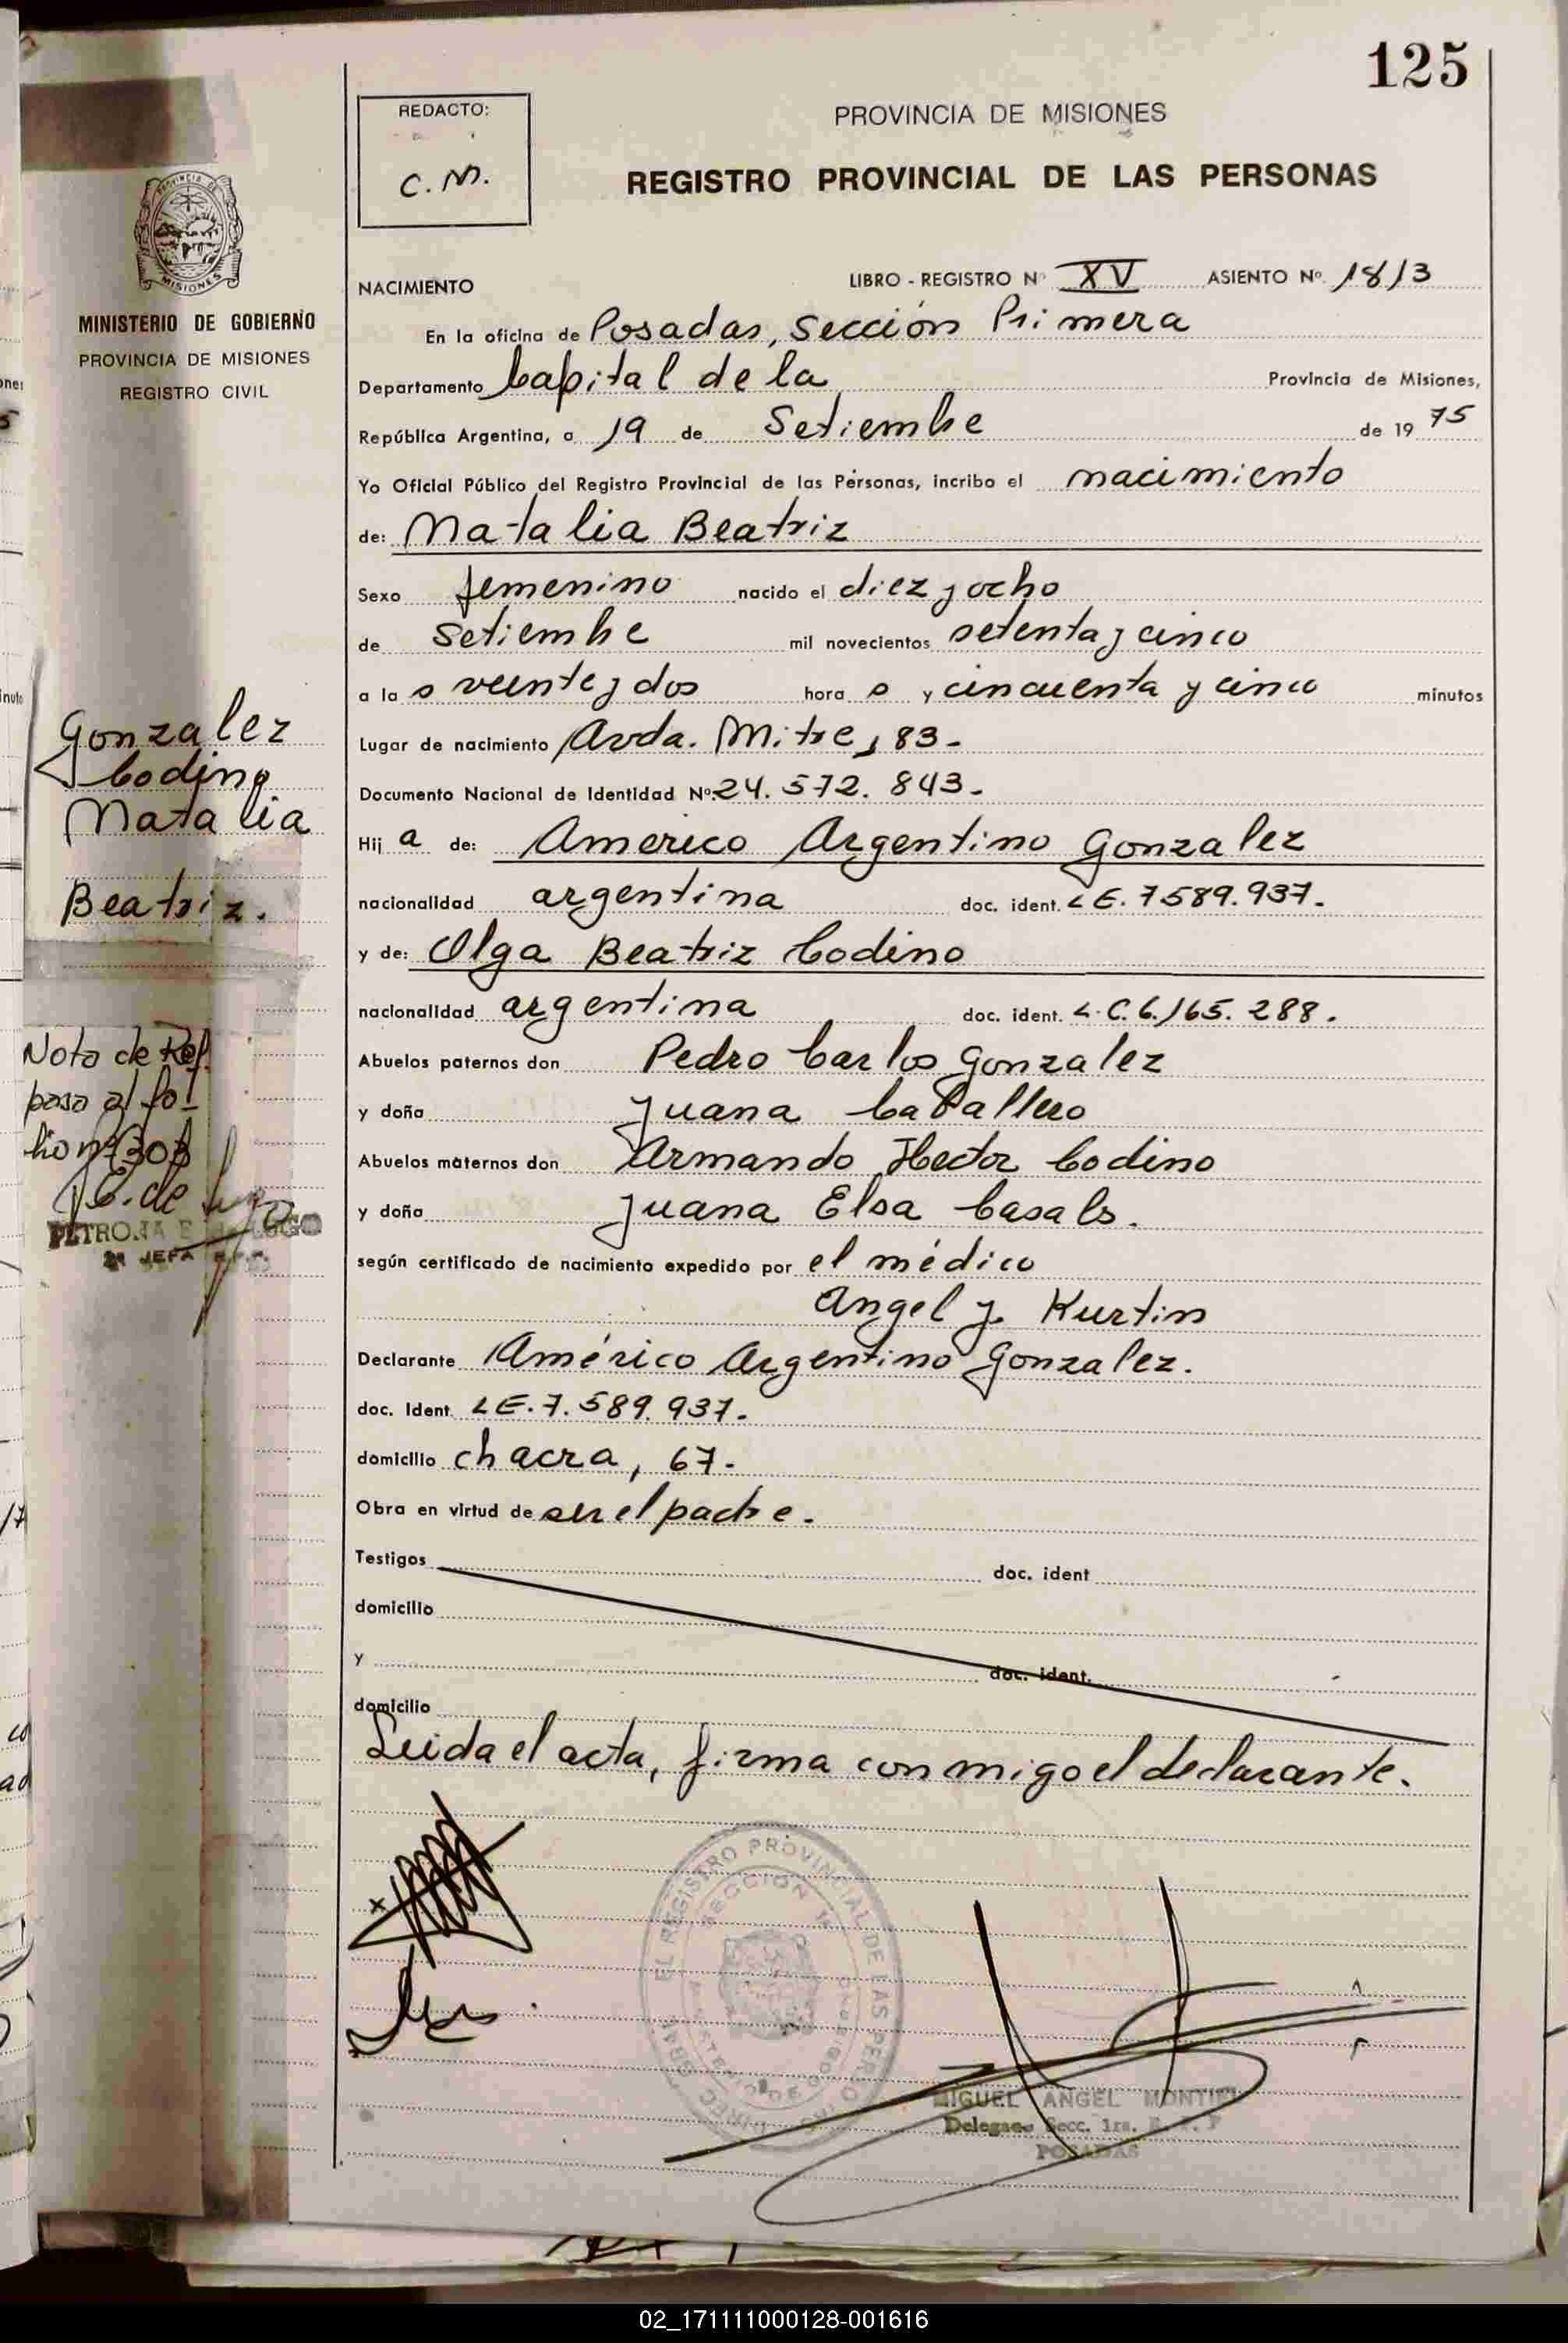 125
REDACTO:
C.M.
PROVINCIA DE MISIONES
REGISTRO PROVINCIAL DE LAS PERSONAS
MINISTERIO DE GOBIERNO
PROVINCIA DE MISIONES
REGISTRO CIVIL
NACIMIENTO LIBRO - REGISTRO Nº XV ASIENTO Nº 1813
En la oficina de Posadas, Sección Primera
Departamento Capital de la Provincia de Misiones,
República Argentina, a 19 de Setiembre de 19 75
Yo Oficial Público del Registro Provincial de las Personas, incribo el nacimiento
de: Natalia Beatriz
Sexo femenino nacido el diez y ocho
de Setiembre mil novecientos setenta y cinco
a la s veinte y dos hora s y cincuenta y cinco minutos
Lugar de nacimiento Avda. Mitre, 83-
Documento Nacional de Identidad Nº 24.572.843-
Hij a de: Americo Argentino Gonzalez
nacionalidad argentina doc. ident. LE. 7589.937.-
y de: Olga Beatriz Codino
nacionalidad argentina doc. ident. L.C. 6.165.288.
Abuelos paternos don Pedro Carlos Gonzalez
y doña Juana Caballero
Abuelos maternos don Armando Hector Codino
y doña Juana Elsa Casals.
según certificado de nacimiento expedido por el médico
Angel J. Kurtin
Declarante Américo Argentino Gonzalez.
doc. ident. LE. 7.589.937-
domicilio chacra, 67-
Obra en virtud de ser el padre.
Testigos doc. ident
domicilio
y doc. ident.
domicilio
Leida el acta, firma conmigo el declarante.
Gonzalez
Codino
Natalia
Beatriz.
Nota de Ref.
pasa al fo-
lio nº 308
PETRONA E de LUGO
JEFA
EL REGISTRO PROVINCIAL DE LAS PERSONAS
SECCION 1ª
MIGUEL ANGEL MONTIEL
Delegado Secc. 1ra. R. P. P
POSADAS
02_171111000128-001616